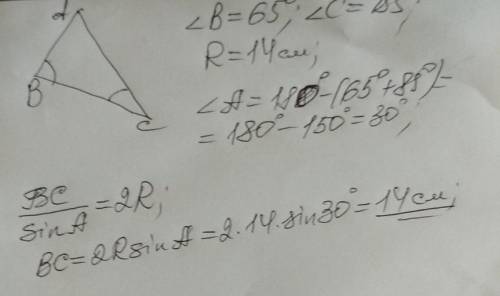 A
B
C
∠B = 65°; ∠C = 85°;
R = 14 см;
∠A = 180° - (65° + 85°) =
= 180° - 150° = 30°;
BC/sin A = 2R;
BC = 2R sin A = 2 · 14 · sin 30° = 14 см;